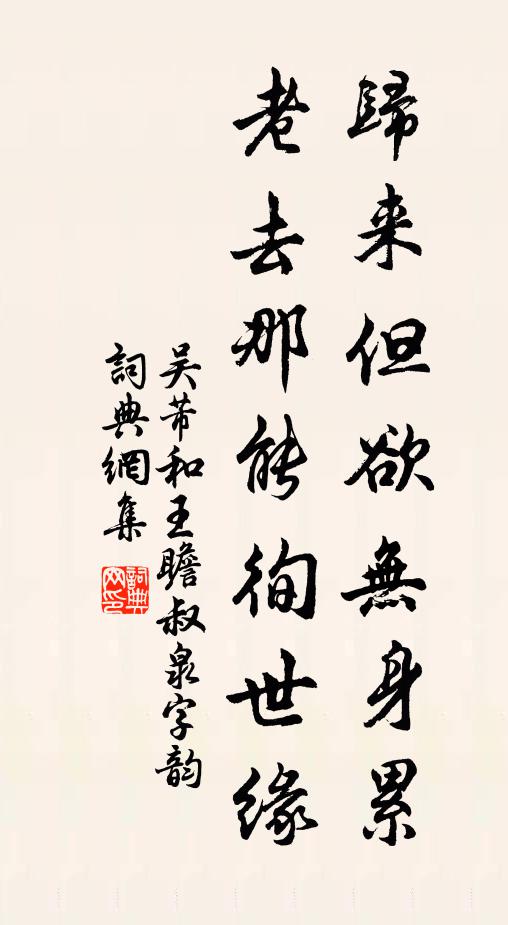 歸来但欲無身累
老去那能徇世緣
吴芾和王瞻叔泉字韵
詞典網集
詞典網印